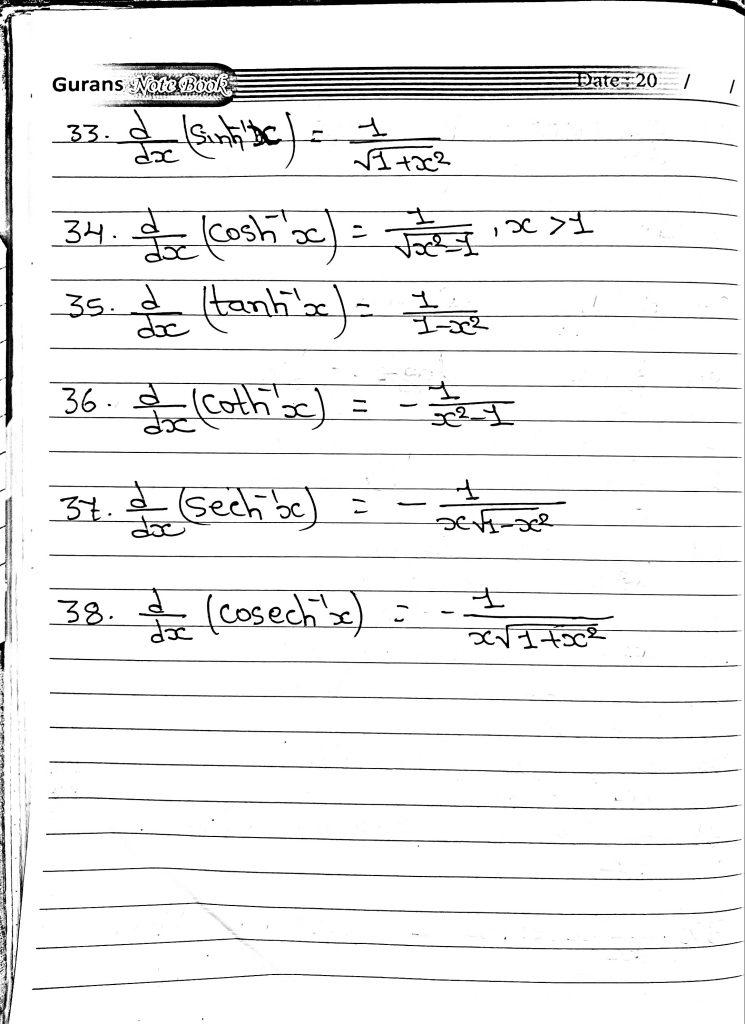 Gurans Note Book Date : 20 / /
33. d/dx (sinh⁻¹x) = 1/√(1+x²)
34. d/dx (cosh⁻¹x) = 1/√(x²-1) , x > 1
35. d/dx (tanh⁻¹x) = 1/(1-x²)
36. d/dx (coth⁻¹x) = - 1/(x²-1)
37. d/dx (sech⁻¹x) = - 1/(x√(1-x²))
38. d/dx (cosech⁻¹x) = - 1/(x√(1+x²))